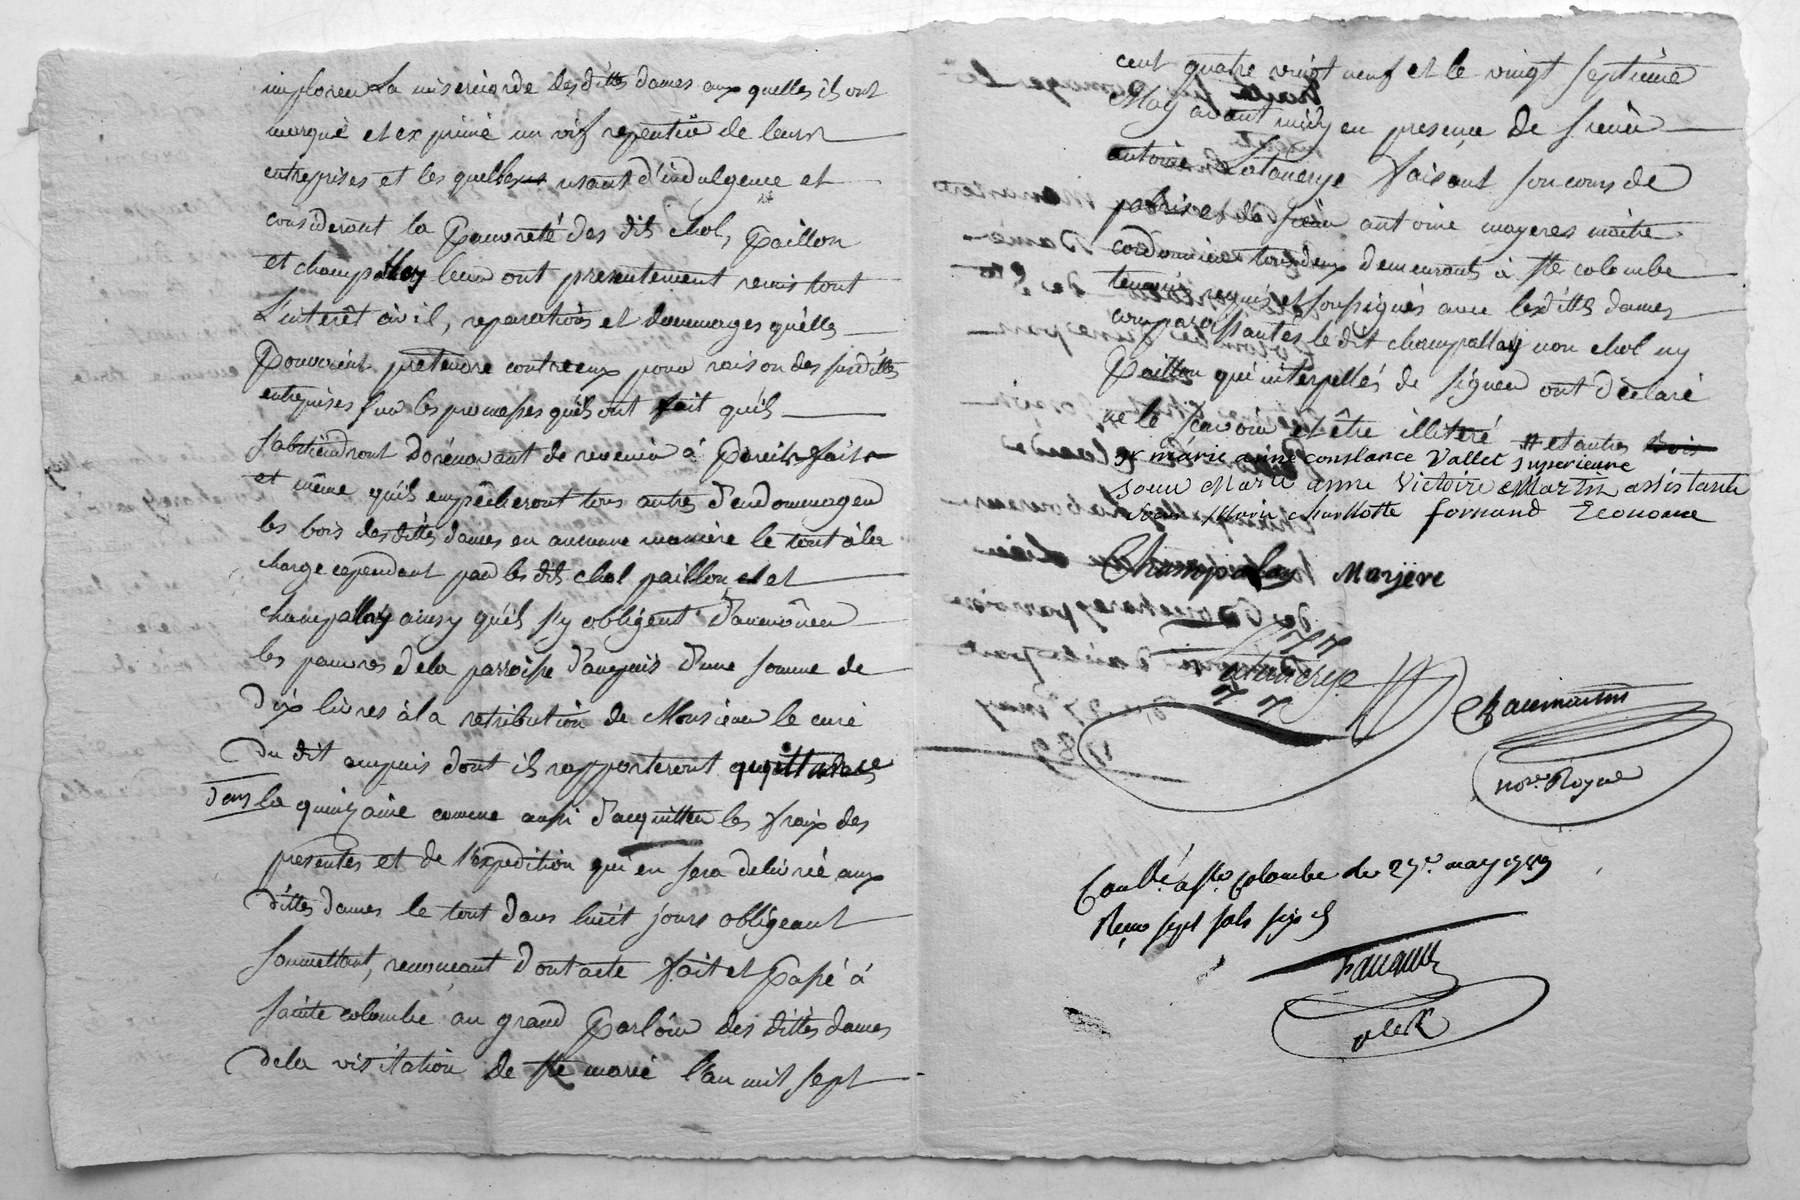 implorer la misericorde desdittes dames aux quelles ils ont
marqué et exprimé un vif repentir de leurs
entreprises et les quelles usant d'indulgence et
considerant la pauvreté des dits chol, paillon
et champallay leur ont presentement remis tout
L'interêt civil, reparations et dommages qu'elles
pouvoient pretendre contreux pour raison des susdittes
entreprises sur les promesses qu'ils ont fait qu'ils
s'abtiendront dorénavant de revenir à pareils faits
et même qu'ils empêcheront tous autres d'endommager
les bois desdittes dames en aucune maniere le tout à la
charge cependant par les dits chol paillon et
champallay ainsy qu'ils s'y obligent d'aumôner
les pauvres dela parroisse d'ampuis d'une somme de
dix livres à la retribution de Monsieur le curé
du dit ampuis dont ils rapporteront quittance
dans la quinzaine comme aussi d'acquitter les fraix des
presentes et de l'expedition qui en sera delivrée aux
dittes dames le tout dans huit jours obligeant
soumettant, renonçant dont acte fait et passé à
sainte colombe au grand parloir des dittes dames
dela visitation de Ste marie l'an mil sept
cent quatre vingt neuf et le vingt septieme
May avant midy en presence de sieur
antoine Latanerye faisant son cours de
et de sieur antoine mayeres maitre
cordonnier tous deux demeurants à Ste colombe
temoins requis et soussignés avec lesdittes dames
comparoissantes le dit champallay non chol ny
paillon qui interpellés de signer ont déclaré
ne le scavoir et être illiteré # et autres bois
Sr marie anne constance Vallet superieure
soeur Marie anne Victoire Martin assistante
soeur Marie charllotte fornand Econome
Champalay Marjere
Latanerye
not.re Royal
Conllé à Ste Colombe le 27e may 1789
Reçu sept sols six d